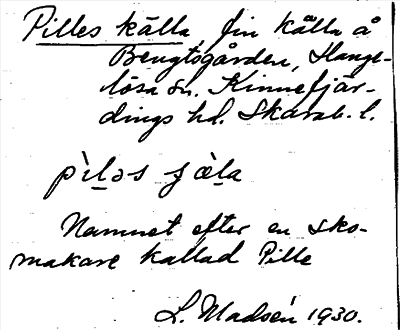 Pilles källa, fin källa å
Bengtsgården, Slange-
lösa sn. Kinnefjär-
dings hd. Skarab. l.
pìḷəs ʃàḷa
Namnet efter en sko-
makare kallad Pille
L. Madsén 1930.